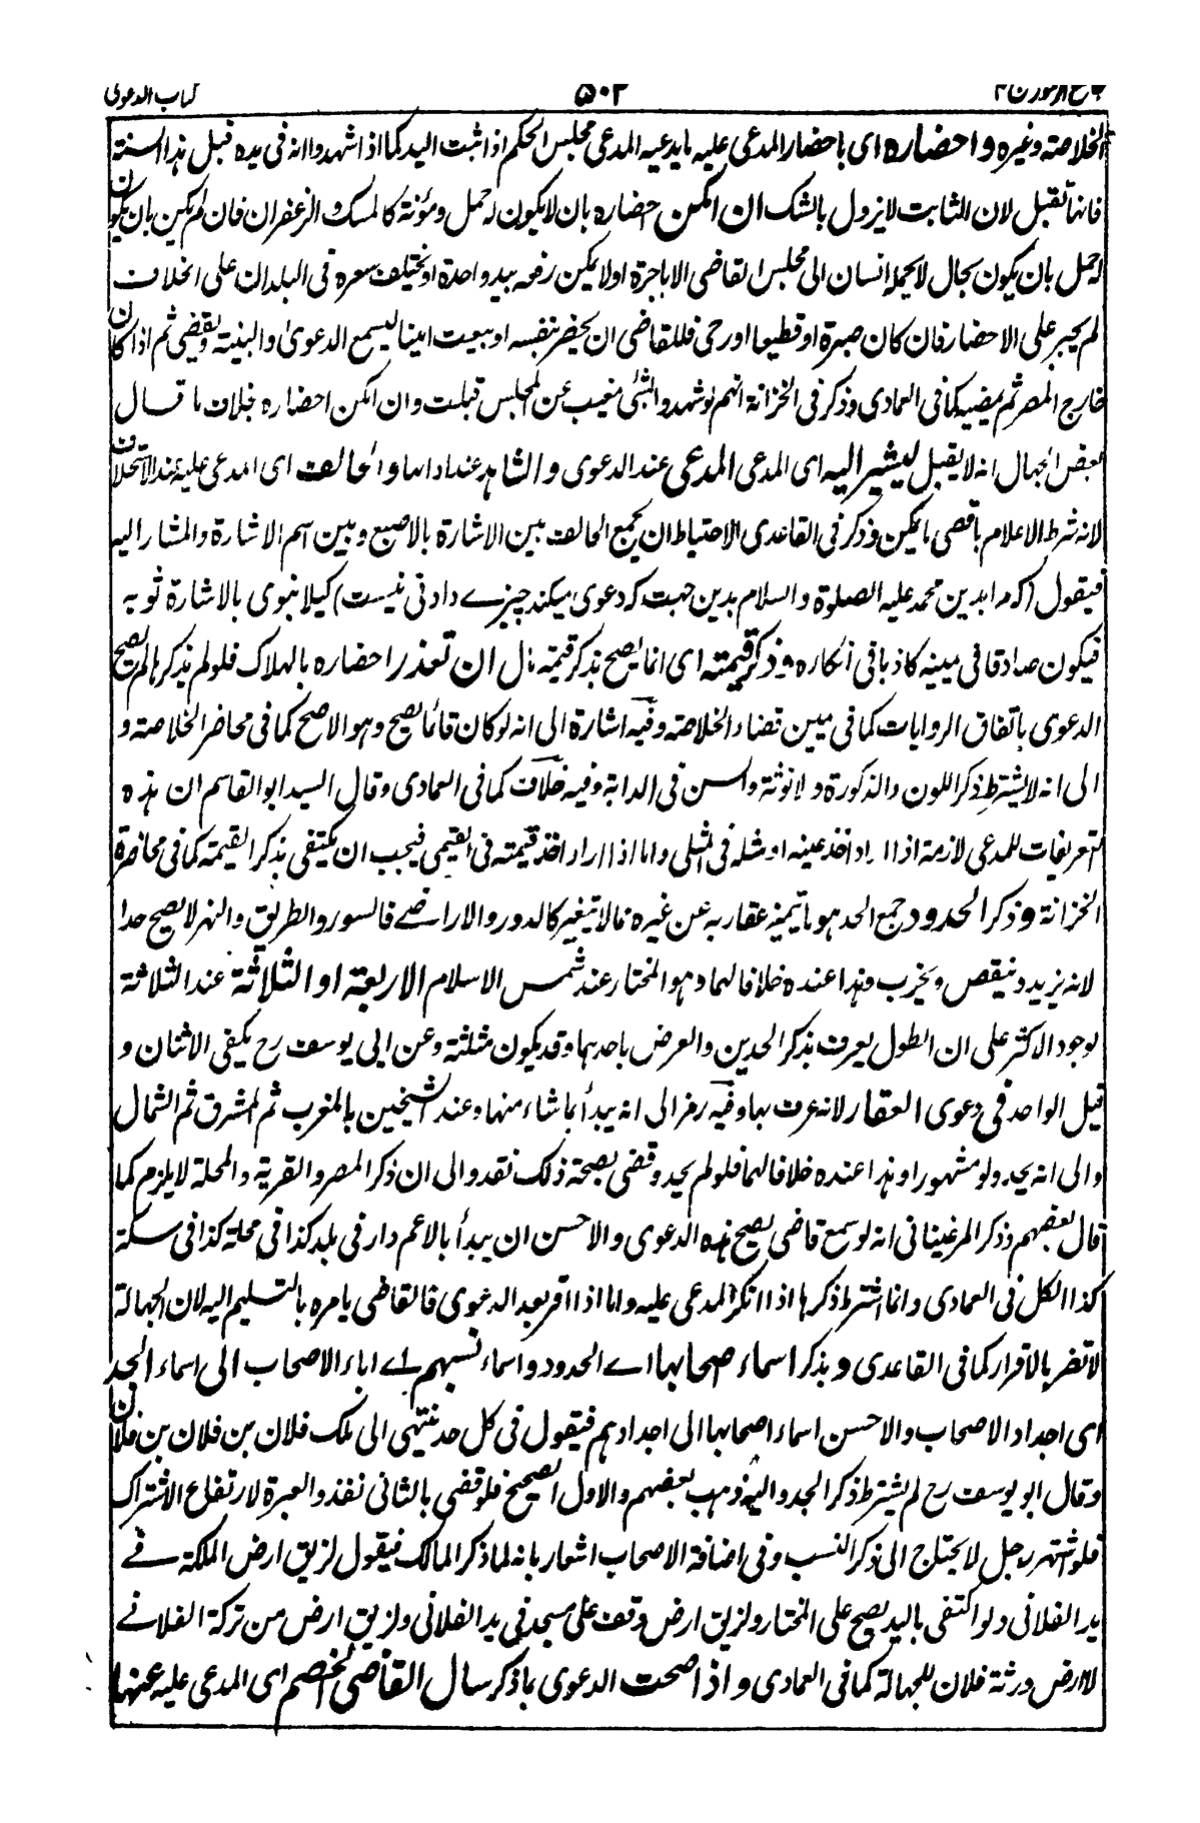 كتاب الدعوى ٥٠٢
الخلاصة وغيره واحضاره اى باحضار المدعى عليه ما يدعيه المدعى مجلس الحكم اذا ثبت اليد كما اذا شهدوا انه فى يده قبل هذا السنة
فانها تقبل لان الثابت لا يزول بالشك ان امكن احضاره بان لا يكون له حمل ومؤنة كالمسك والزعفران فان لم يكن بان يكون
له حمل بان يكون بحال لا يحمله انسان الى مجلس القاضى الا باجرة او لا يمكن رفعه بيد واحدة او يختلف سعره فى البلدان على الخلاف
لم يجبر على الاحضار فان كان صبرة او قطيعا او رحى فللقاضى ان يحضر بنفسه او يبعث امينا ليسمع الدعوى والبينة ويقضى ثم اذا كان
خارج المصر ثم يمضيه كما فى العمادى وذكر فى الخزانة انهم لو شهدوا بشئ مغيب عن المجلس قبلت وان امكن احضاره بخلاف ما قال
بعض الجهال انه لا يقبل ليشير اليه اى المدعى المدعى عند الدعوى والشاهد عند اداءها والحالف اى المدعى عليه عند الاستحلاف
لانه شرط الاعلام باقصى ما يمكن وذكر فى القاعدى الاحتياط ان يجمع الحالف بين الاشارة بالاصبع وبين اسم الاشارة والمشار اليه
فيقول (كه مرا بدين محمد عليه الصلوة والسلام بدين جهت كه دعوى ميكند چيزے دادنى نيست) كيلا ينوى بالاشارة ثوبه
فيكون صادقا فى يمينه كاذبا فى انكاره وذكر قيمته اى انما يصح بذكر قيمة مال ان تعذر احضاره بالهلاك فلو لم يذكرها لم يصح
الدعوى باتفاق الروايات كما فى يمين قضاء الخلاصة وفيه اشارة الى انه لو كان قائما يصح وهو الاصح كما فى محاضر الخلاصة و
الى انه لا يشترط ذكر اللون والذكورة والانوثة والسن فى الدابة وفيه خلاف كما فى العمادى وقال السيد ابو القاسم ان هذه
التعريفات للمدعى لازمة اذا اراد اخذ عينه او مثله فى المثلى واما اذا اراد اخذ قيمته فى القيمى فيجب ان يكتفى بذكر القيمة كما فى محاضرة
الخزانة وذكر الحدود جمع الحد هو ما يتميز به عقار عن غيره مما لا يتغير كالدور والاراضے فالسور والطريق والنهر لا يصح حدا
لانه يزيد وينقص ويخرب وهذا عنده خلافا لهما وهو المختار عند شمس الاسلام الاربعة او الثلاثة عند الثلاثة
لوجود الاكثر على ان الطول يعرف بذكر الحدين والعرض باحدهما وقد يكون مثلثة وعن ابى يوسف رح يكفى الاثنان و
قيل الواحد فى دعوى العقار لانه عرف بها وفيه رمز الى انه يبدأ بما شاء منها وعند الشيخين بالمغرب ثم المشرق ثم الشمال
والى انه يحد ولو مشهورا وهذا عنده خلافا لهما فلو لم يحد وقضى بصحة ذلك نفذ والى ان ذكر المصر والقرية والمحلة لا يلزم كما
قال بعضهم وذكر المرغينانى انه لو سمع قاضى يصح هذه الدعوى والاحسن ان يبدأ بالاعم دار فى بلد كذا فى محلة كذا فى سكة
كذا الكل فى العمادى وانما اشترط ذكرها اذا انكر المدعى عليه واما اذا اقر بعد الدعوى فالقاضى يامره بالتسليم اليه لان الجهالة
لا تضر بالاقرار كما فى القاعدى ويذكر اسماء صحابها اے الحدود واسماء نسبهم اے اباء الاصحاب الى اسماء الجد
اى اجداد الاصحاب والاحسن اسماء اصحابها الى اجدادهم فيقول فى كل حد ينتهى الى ملك فلان بن فلان بن فلان
وقال ابو يوسف رح لم يشترط ذكر الجد واليه ذهب بعضهم والاول الصحيح فلو قضى بالثانى نفذ والعبرة لارتفاع الاشتراك
فلو اشتهر رجل لا يحتاج الى ذكر النسب وفى اضافة الاصحاب اشعار بانه لما ذكر المالك فيقول لزيق ارض الملكة فے
يد الفلانى ولو اكتفى باليد يصح على المختار ولزيق ارض وقف على مسجد فى يد الفلانى ولزيق ارض من تركة الفلانے
لا ارض ورثة فلان للجهالة كما فى العمادى واذا صحت الدعوى بما ذكر سال القاضى الخصم اى المدعى عليه عنها